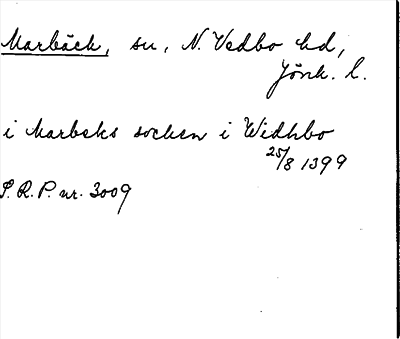 Marbäck, sn, N. Vedbo hd,
Jönk. l.
i Marbeks sochen i Widhbo
25/8 1399
S.R.P. nr. 3009